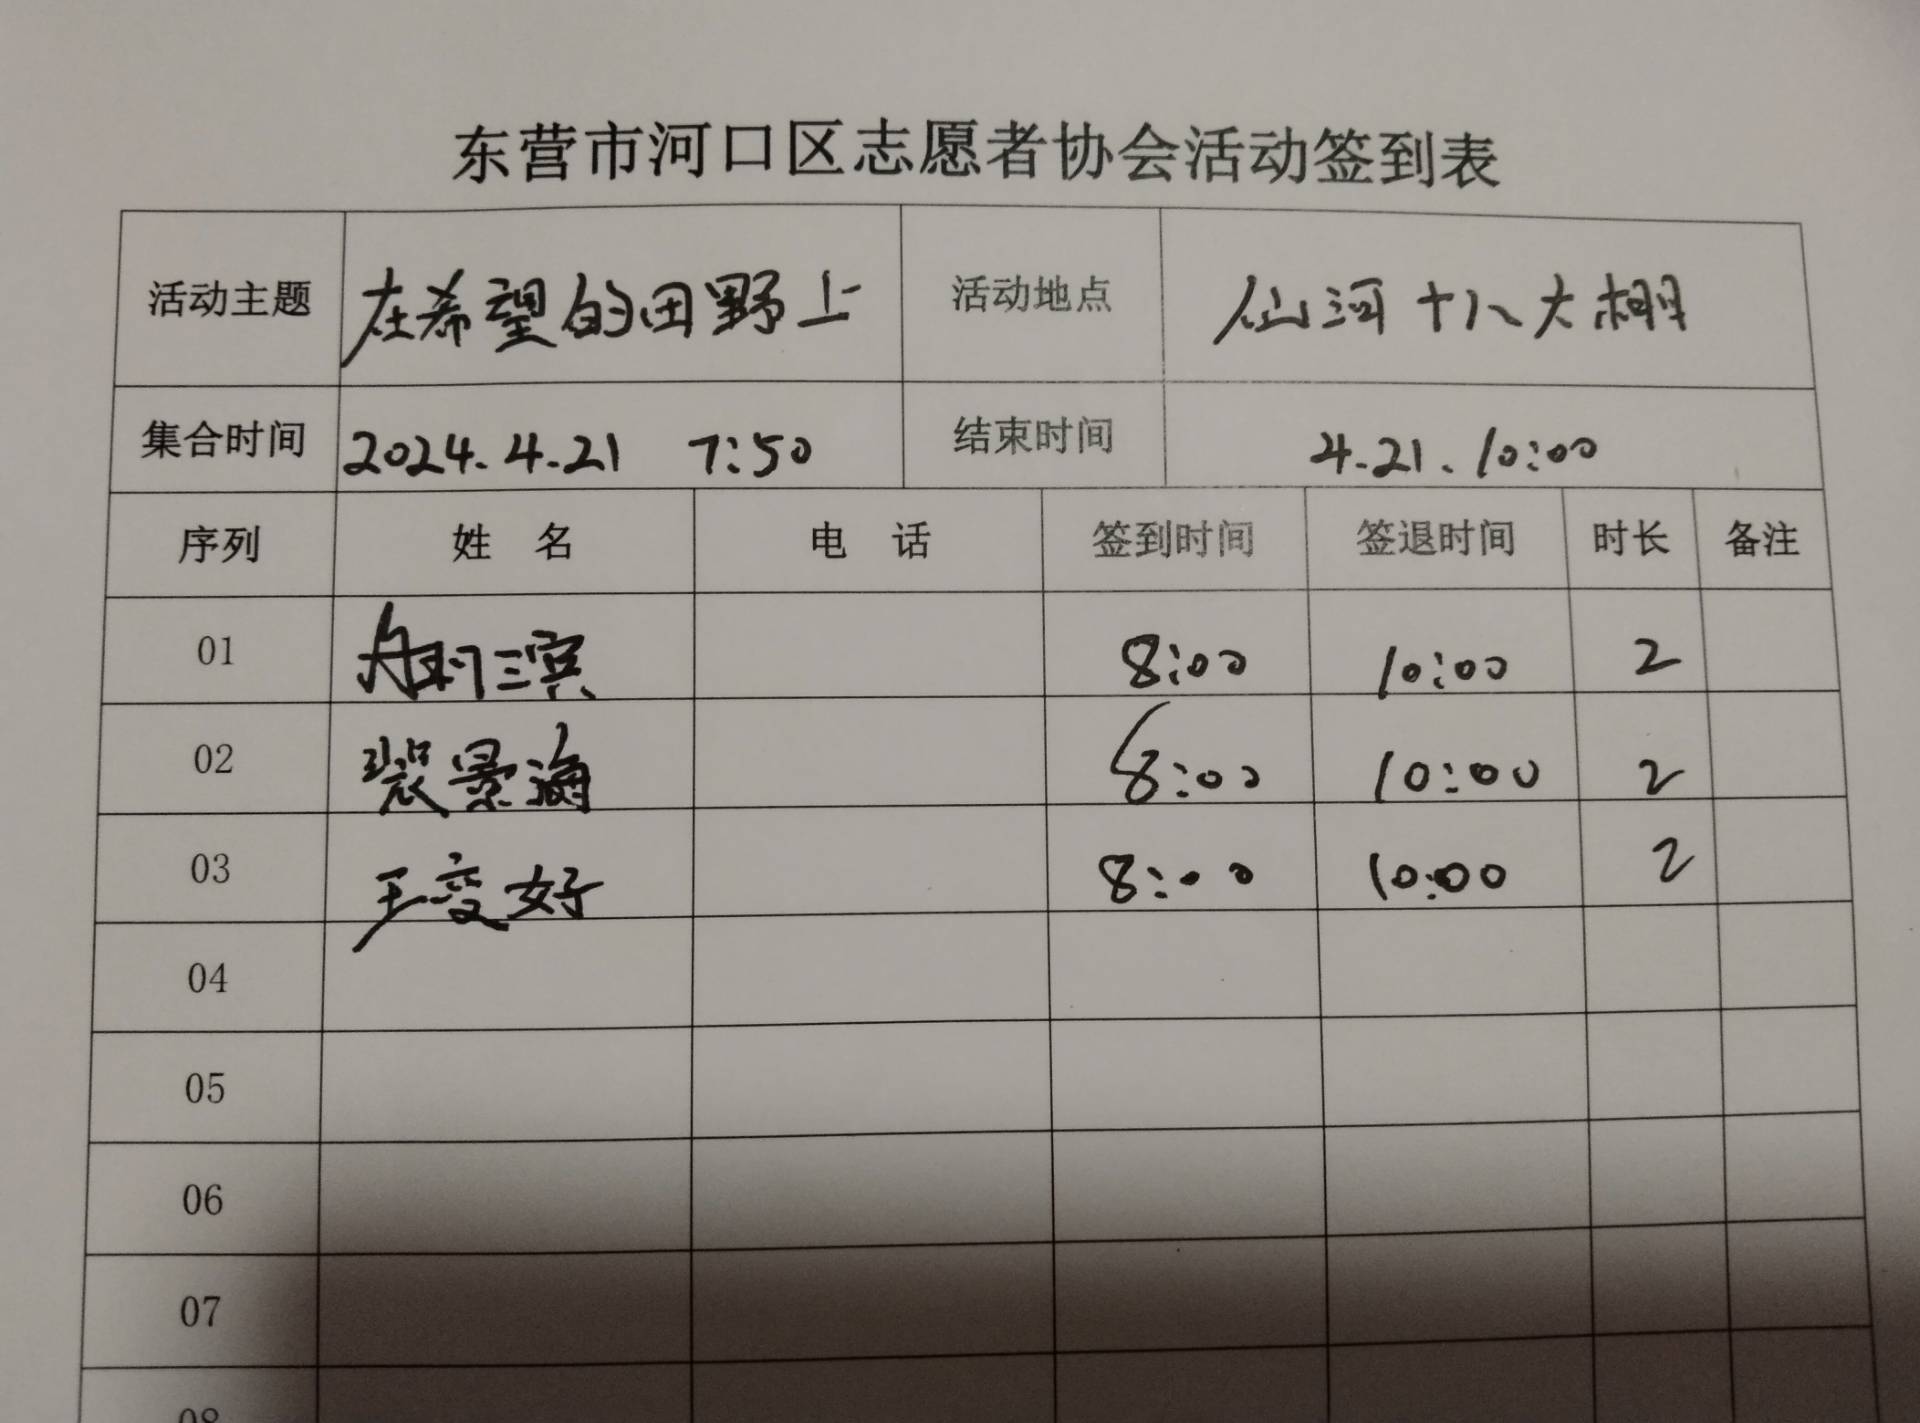 东营市河口区志愿者协会活动签到表
活动主题 在希望的田野上 活动地点 仙河十八大棚
集合时间 2024.4.21 7:50 结束时间 4.21.10:00
序列 姓名 电话 签到时间 签退时间 时长 备注
01 8:00 10:00 2
02 裴景海 8:00 10:00 2
03 王变好 8:00 10:00 2
04
05
06
07
08